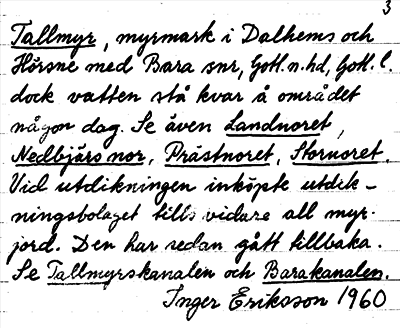 3
Tallmyr, myrmark i Dalhems och
Hörsne med Bara snr, Gotl. n. hd, Gotl. l.
dock vatten stå kvar å området
någon dag. Se även Landnoret,
Nedbjärs nor, Prästnoret, Stornoret.
Vid utdikningen inköpte utdik-
ningsbolaget tills vidare all myr-
jord. Den har redan gått tillbaka.
Se Tallmyrskanalen och Barakanalen.
Inger Eriksson 1960